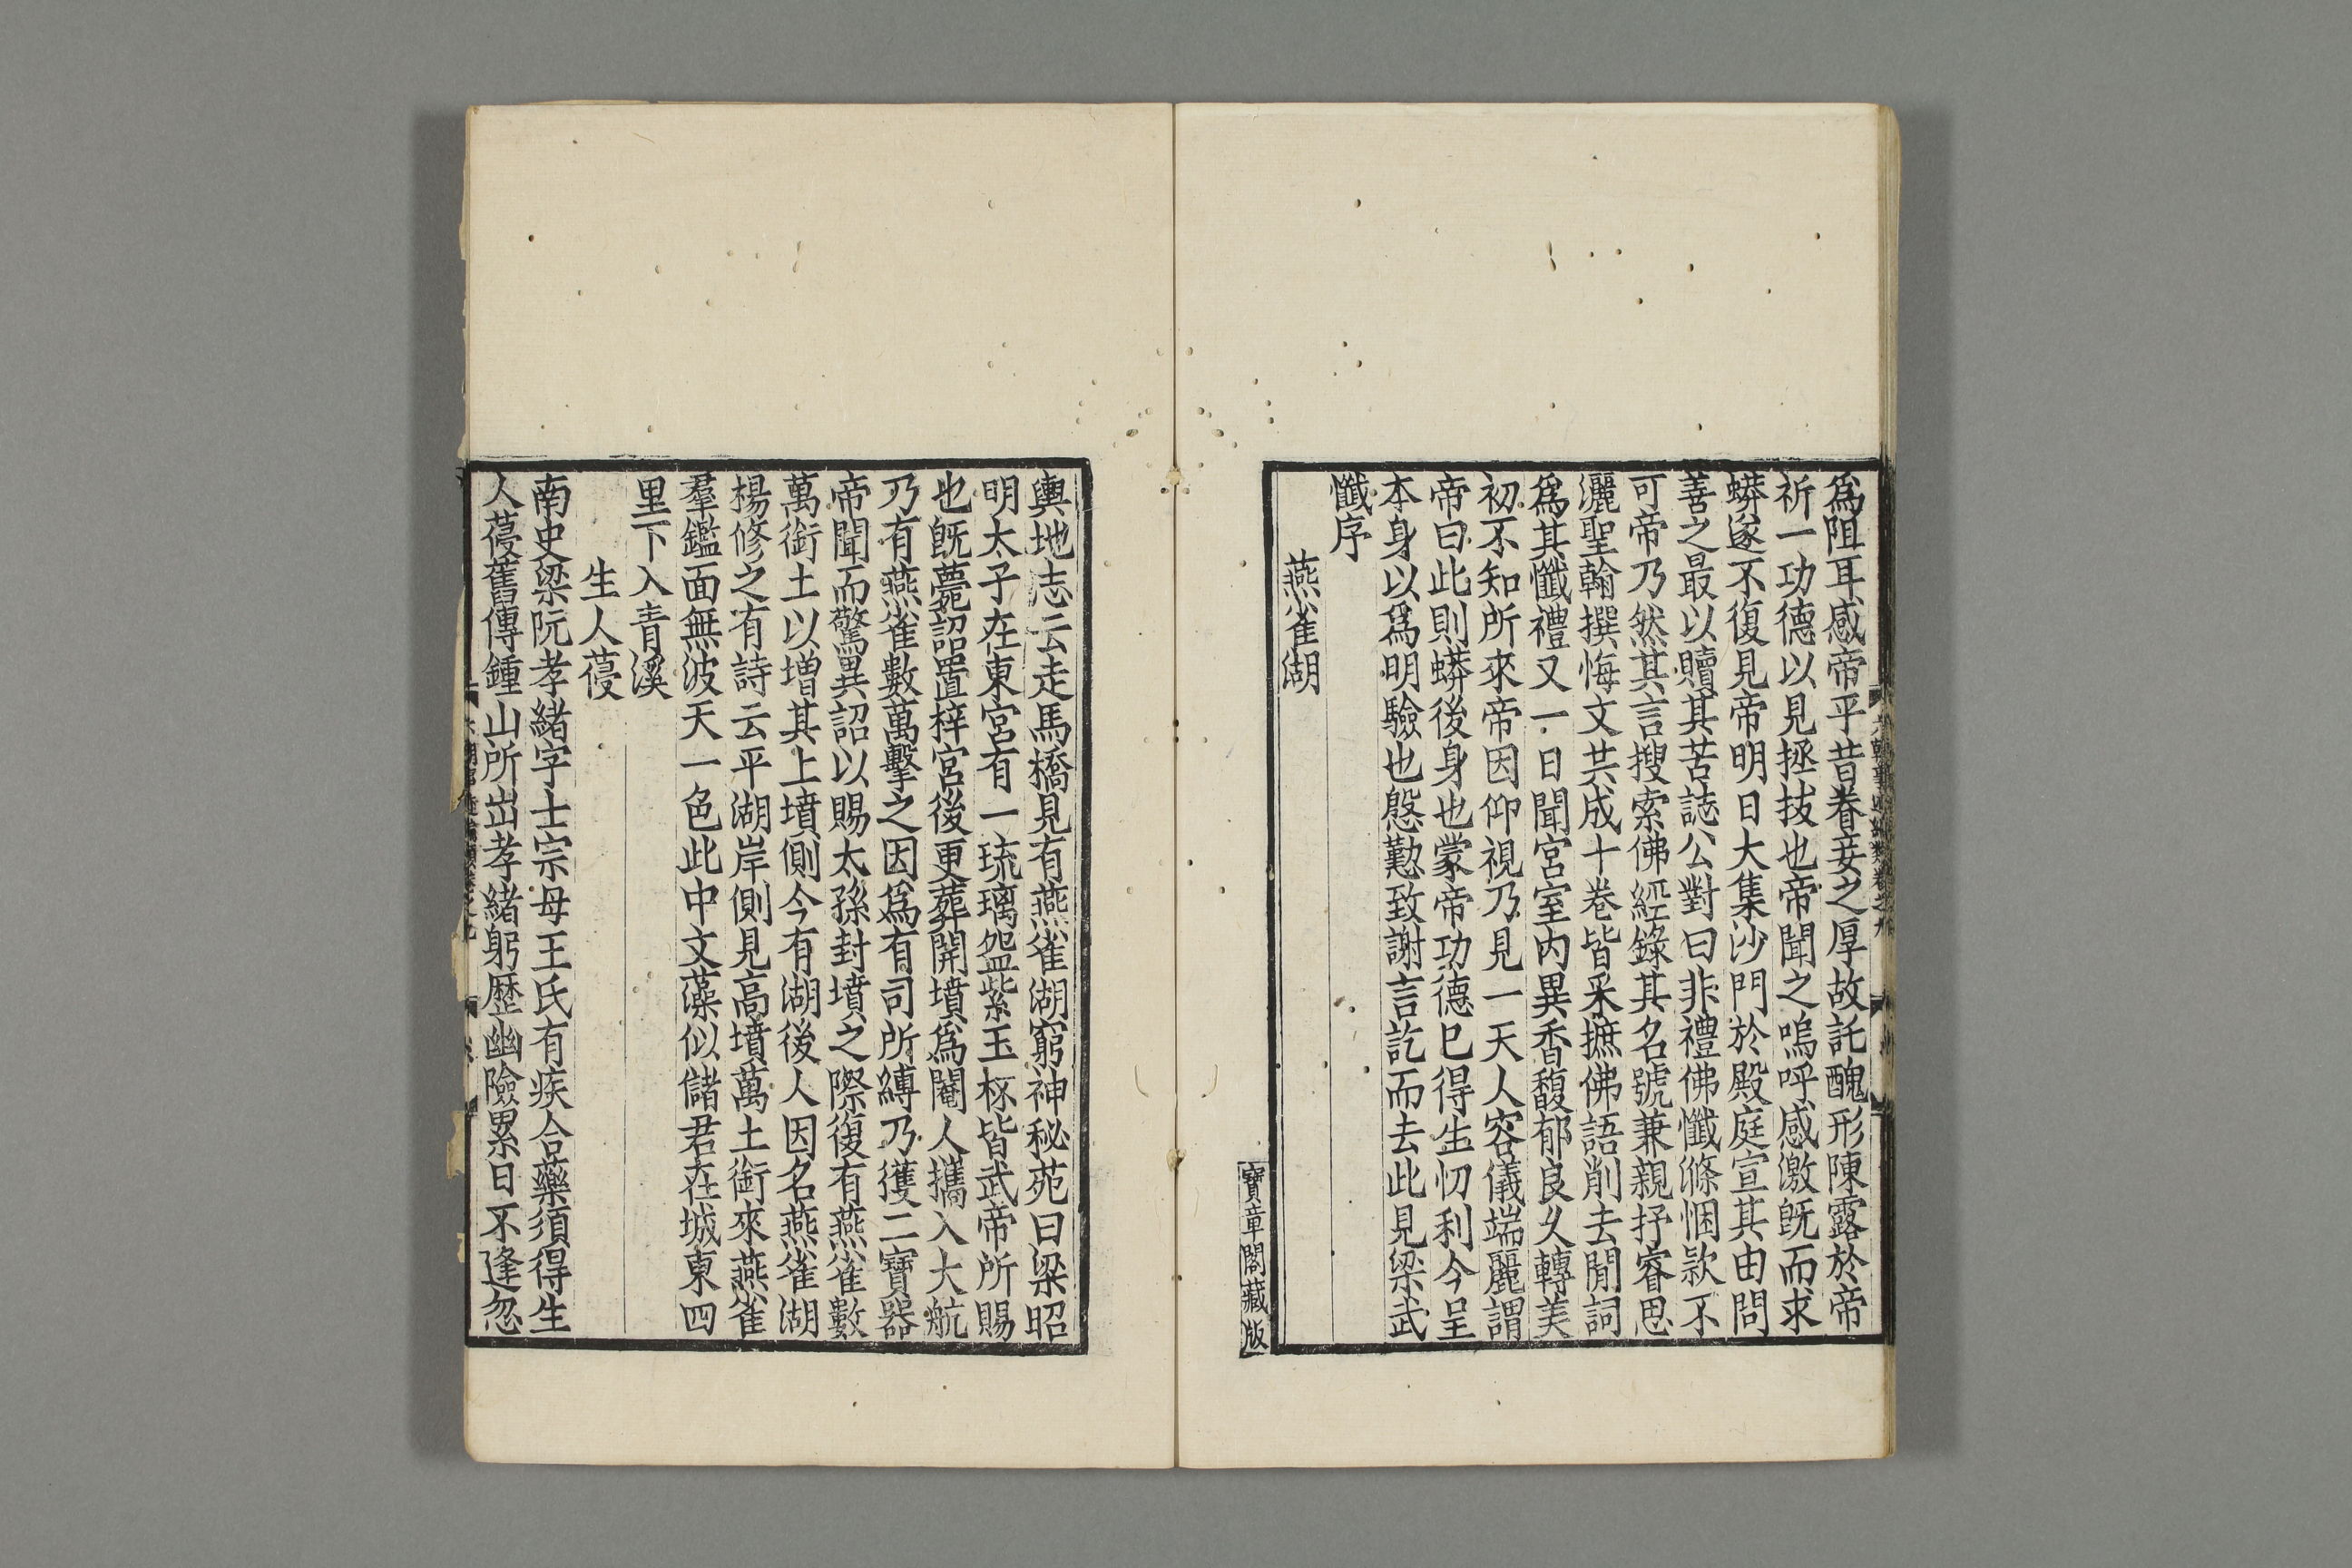 爲阻耳感帝平昔眷妾之厚故託醜形陳露於帝
祈一功德以見拯拔也帝聞之嗚呼感激旣而求
蟒遂不復見帝明日大集沙門於殿庭宣其由問
善之最以贖其苦誌公對曰非禮佛懺滌悃款不
可帝乃然其言搜索佛經錄其名號兼親抒睿思
灑聖翰撰悔文共成十卷皆采摭佛語削去閒詞
爲其懺禮又一日聞宮室内異香馥郁良久轉美
初不知所來帝因仰視乃見一天人容儀端麗謂
帝曰此則蟒後身也蒙帝功德已得生忉利今呈
本身以爲明驗也慇懃致謝言訖而去此見梁武
懺序
燕雀湖
寶章閣藏版
輿地志云走馬橋見有燕雀湖窮神秘苑曰梁昭
明太子在東宮有一琉璃盌紫玉杯皆武帝所賜
也旣薨詔置梓宮後更葬開墳爲閹人攜入大航
乃有燕雀數萬擊之因爲有司所縛乃獲二寶器
帝聞而驚異詔以賜太孫封墳之際復有燕雀數
萬銜土以增其上墳側今有湖後人因名燕雀湖
楊修之有詩云平湖岸側見高墳萬土銜來燕雀
羣鑑面無波天一色此中文藻似儲君在城東四
里下入青溪
生人葠
南史梁阮孝緒字士宗母王氏有疾合藥須得生
人葠舊傳鍾山所出孝緒躬歷幽險累日不逢忽